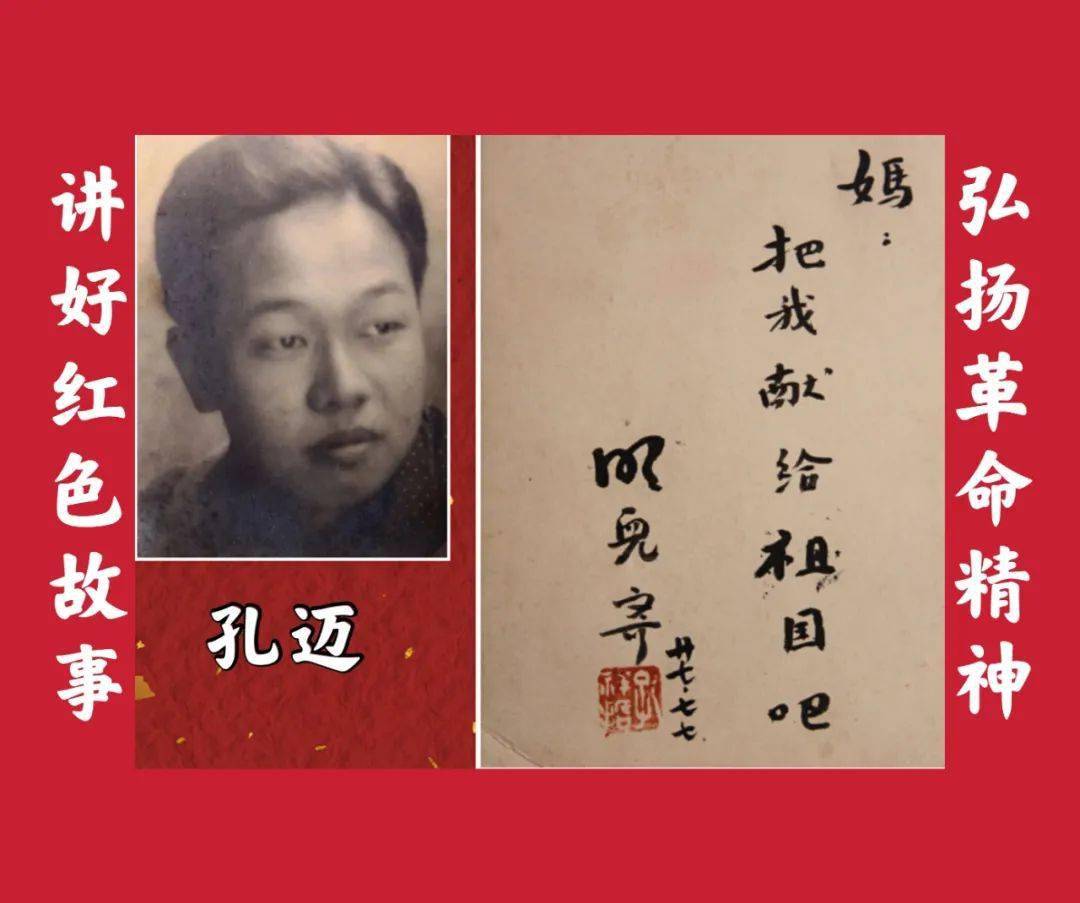 讲好红色故事
孔迈
媽：
把我献给祖国吧
明兒寄
廿七.七.七.
弘扬革命精神